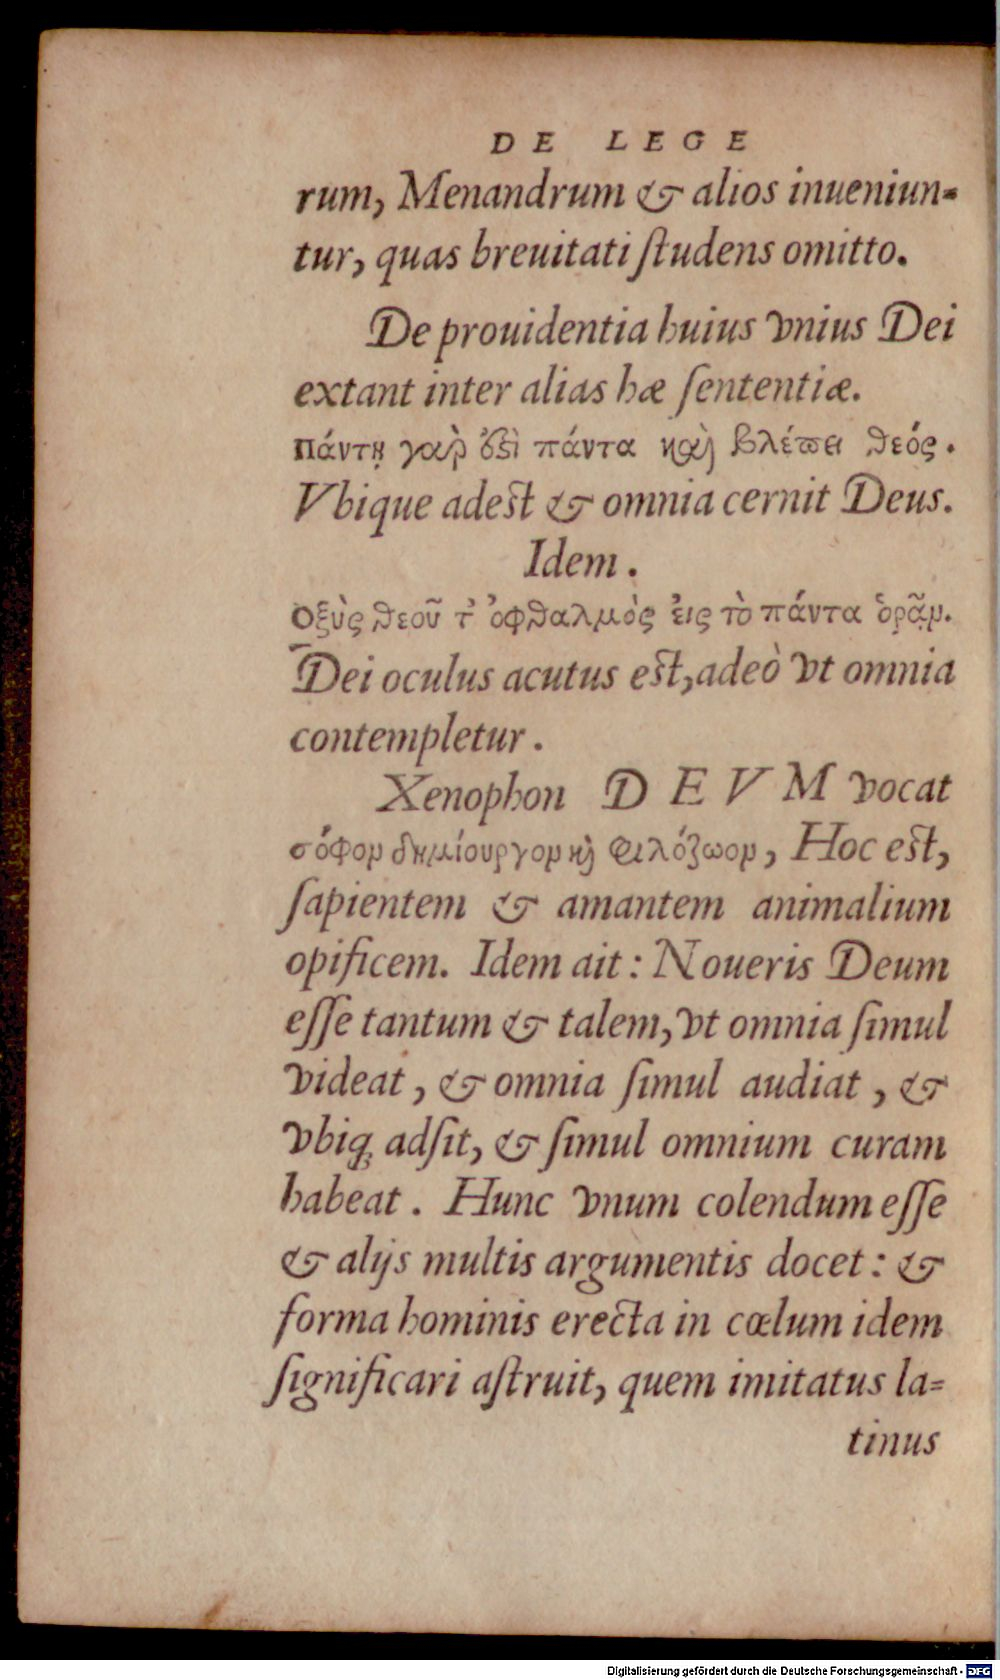 DE LEGE
rum, Menandrum & alios inueniun-
tur, quas breuitati ſtudens omitto.
De prouidentia huius vnius Dei
extant inter alias hæ ſententiæ.
Πάντῃ γὰρ ὅϛὶ πάντα καὶ βλέπει θεός.
Vbique adest & omnia cernit Deus.
Idem.
Οξὺς θεοῦ τ᾽ ὀφθαλμὸς ἐις τὸ πάντα ὁρᾷν.
Dei oculus acutus est, adeò vt omnia
contempletur.
Xenophon DEVM vocat
σόφον δημίουργον καὶ φιλόζωον, Hoc est,
ſapientem & amantem animalium
opificem. Idem ait: Noueris Deum
eſſe tantum & talem, vt omnia ſimul
videat, & omnia ſimul audiat, &
vbiq; adſit, & ſimul omnium curam
habeat. Hunc vnum colendum eſſe
& alijs multis argumentis docet: &
forma hominis erecta in cœlum idem
ſignificari aſtruit, quem imitatus la-
tinus
Digitalisierung gefördert durch die Deutsche Forschungsgemeinschaft - DFG